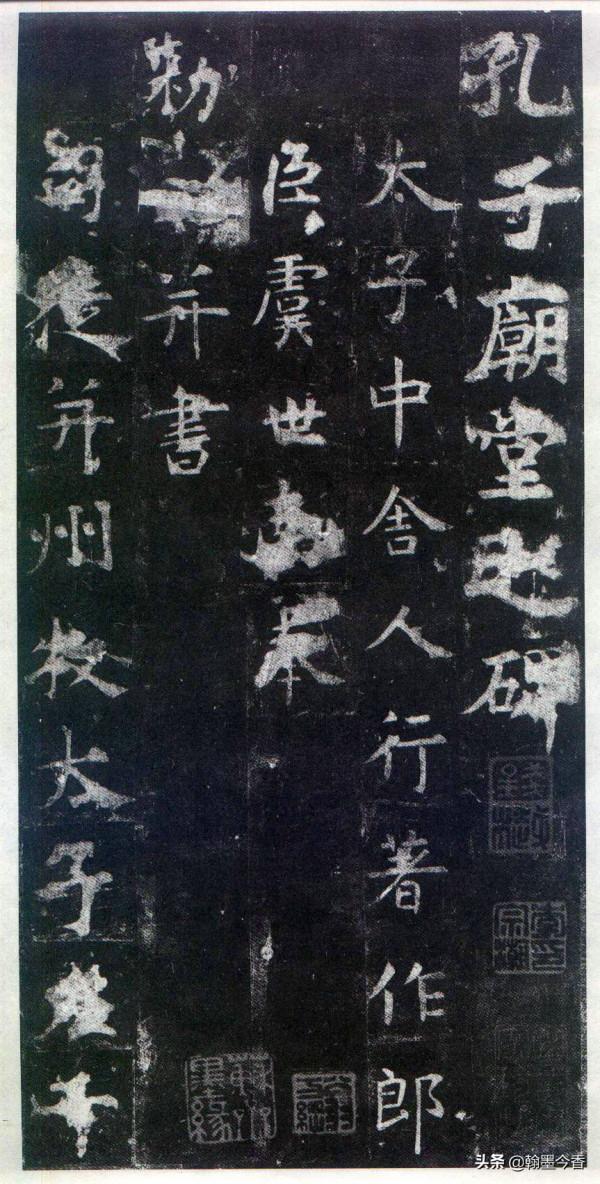 孔子廟堂之碑
太子中舍人行著作郎
臣虞世南奉
勅并書
徒并州牧太子千
头条 @翰墨今香